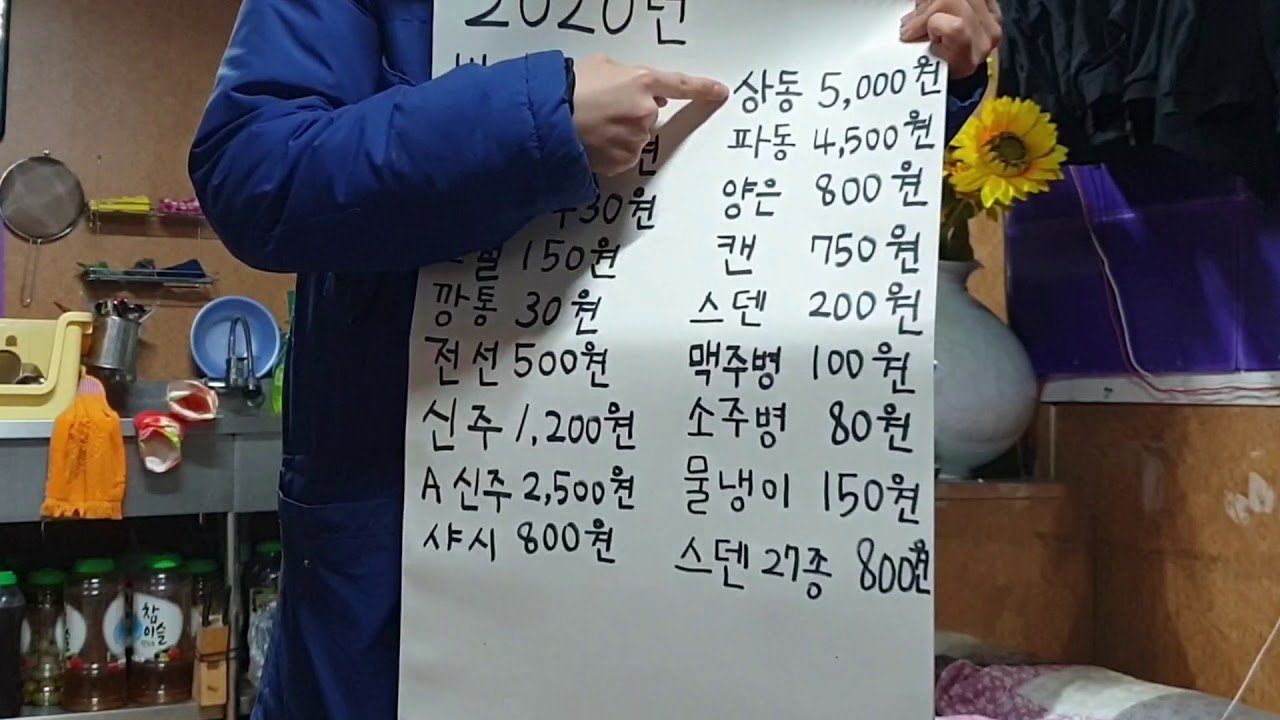 2020년
원
30원
150원
깡통 30원
전선 500원
신주 1,200원
A 신주 2,500원
샤시 800원
상동 5,000원
파동 4,500원
양은 800원
캔 750원
스덴 200원
맥주병 100원
소주병 80원
물냉이 150원
스덴 27종 800원
참
이슬